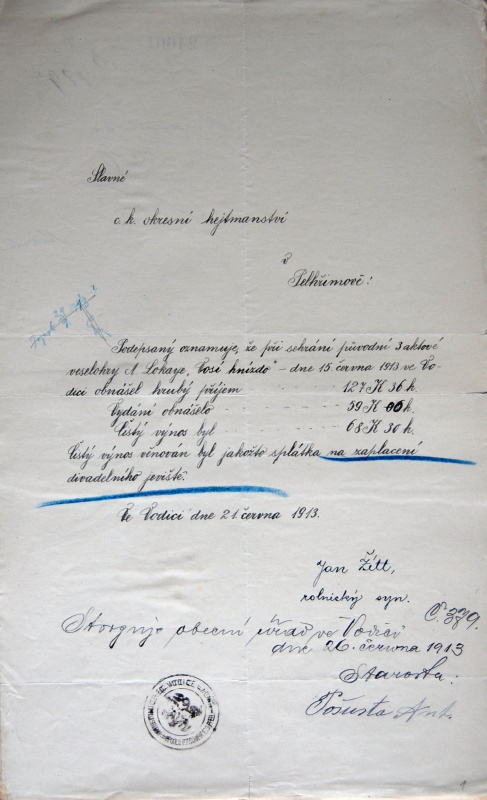 Slavné
c. k. okresní hejtmanství
v
Pelhřimově!
Podepsaný oznamuje, že při sehrání původní 3 aktové
veselohry A. Lokaye, "Vosí hnízdo" - dne 15. června 1913 ve Vo-
dici obnášel hrubý příjem 127 K 36 h.
Vydání obnášelo 59 K 06 h.
Čistý výnos byl 68 K 30 h.
Čistý výnos věnován byl jakožto splátka na zaplacení
divadelního jeviště.
Ve Vodici dne 21. června 1913.
Jan Žítt,
rolnický syn.
Č. 379.
Stvrzuje obecní úřad ve Vodici
dne 26. června 1913
Starosta:
Pošusta Ant.
1